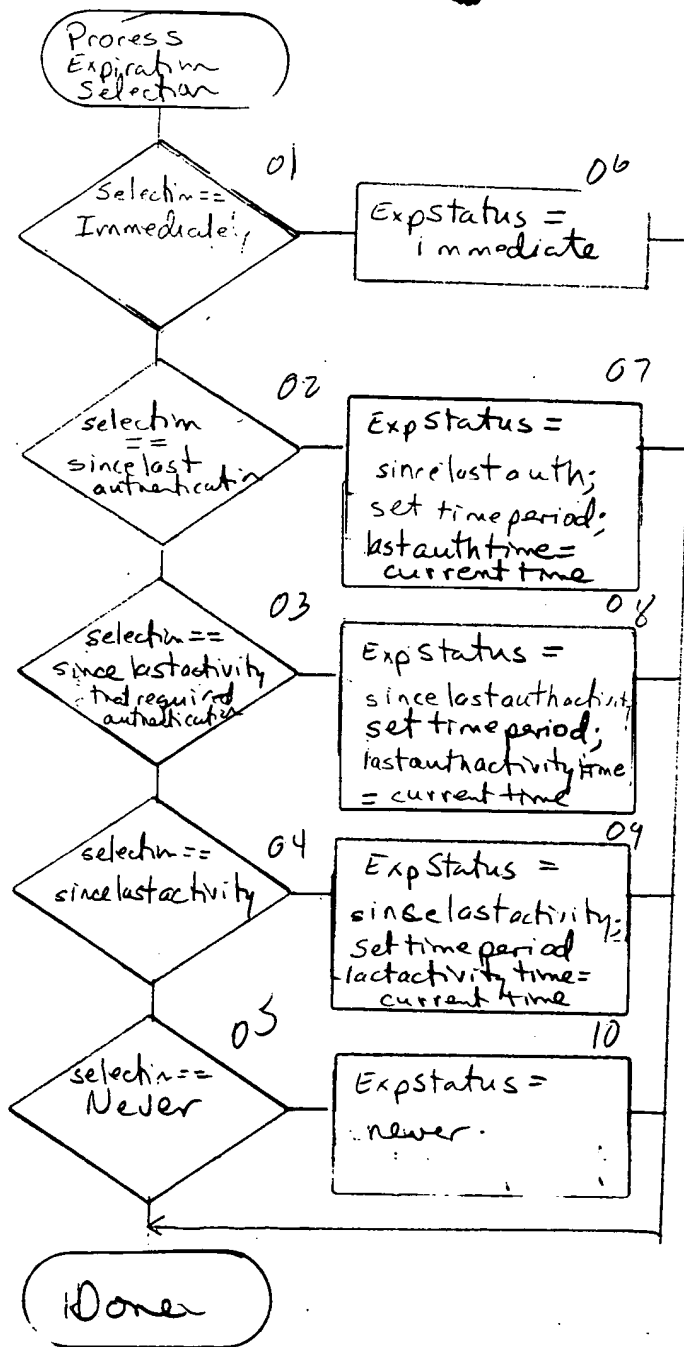 Process
Expiration
Selection
01
selection==
Immediate
06
ExpStatus =
immediate
02
selection
==
since last
authentication
07
ExpStatus =
sincelastauth;
set timeperiod;
lastauthtime=
current time
03
selection==
since lastactivity
that required
authentication
08
ExpStatus =
sincelastauthactivity
set timeperiod;
lastauthactivitytime
= current time
04
selection==
sincelastactivity
09
ExpStatus =
sinselastactivity;
set timeperiod
lactactivity time=
current time
05
selection==
Never
10
ExpStatus =
never.
Done